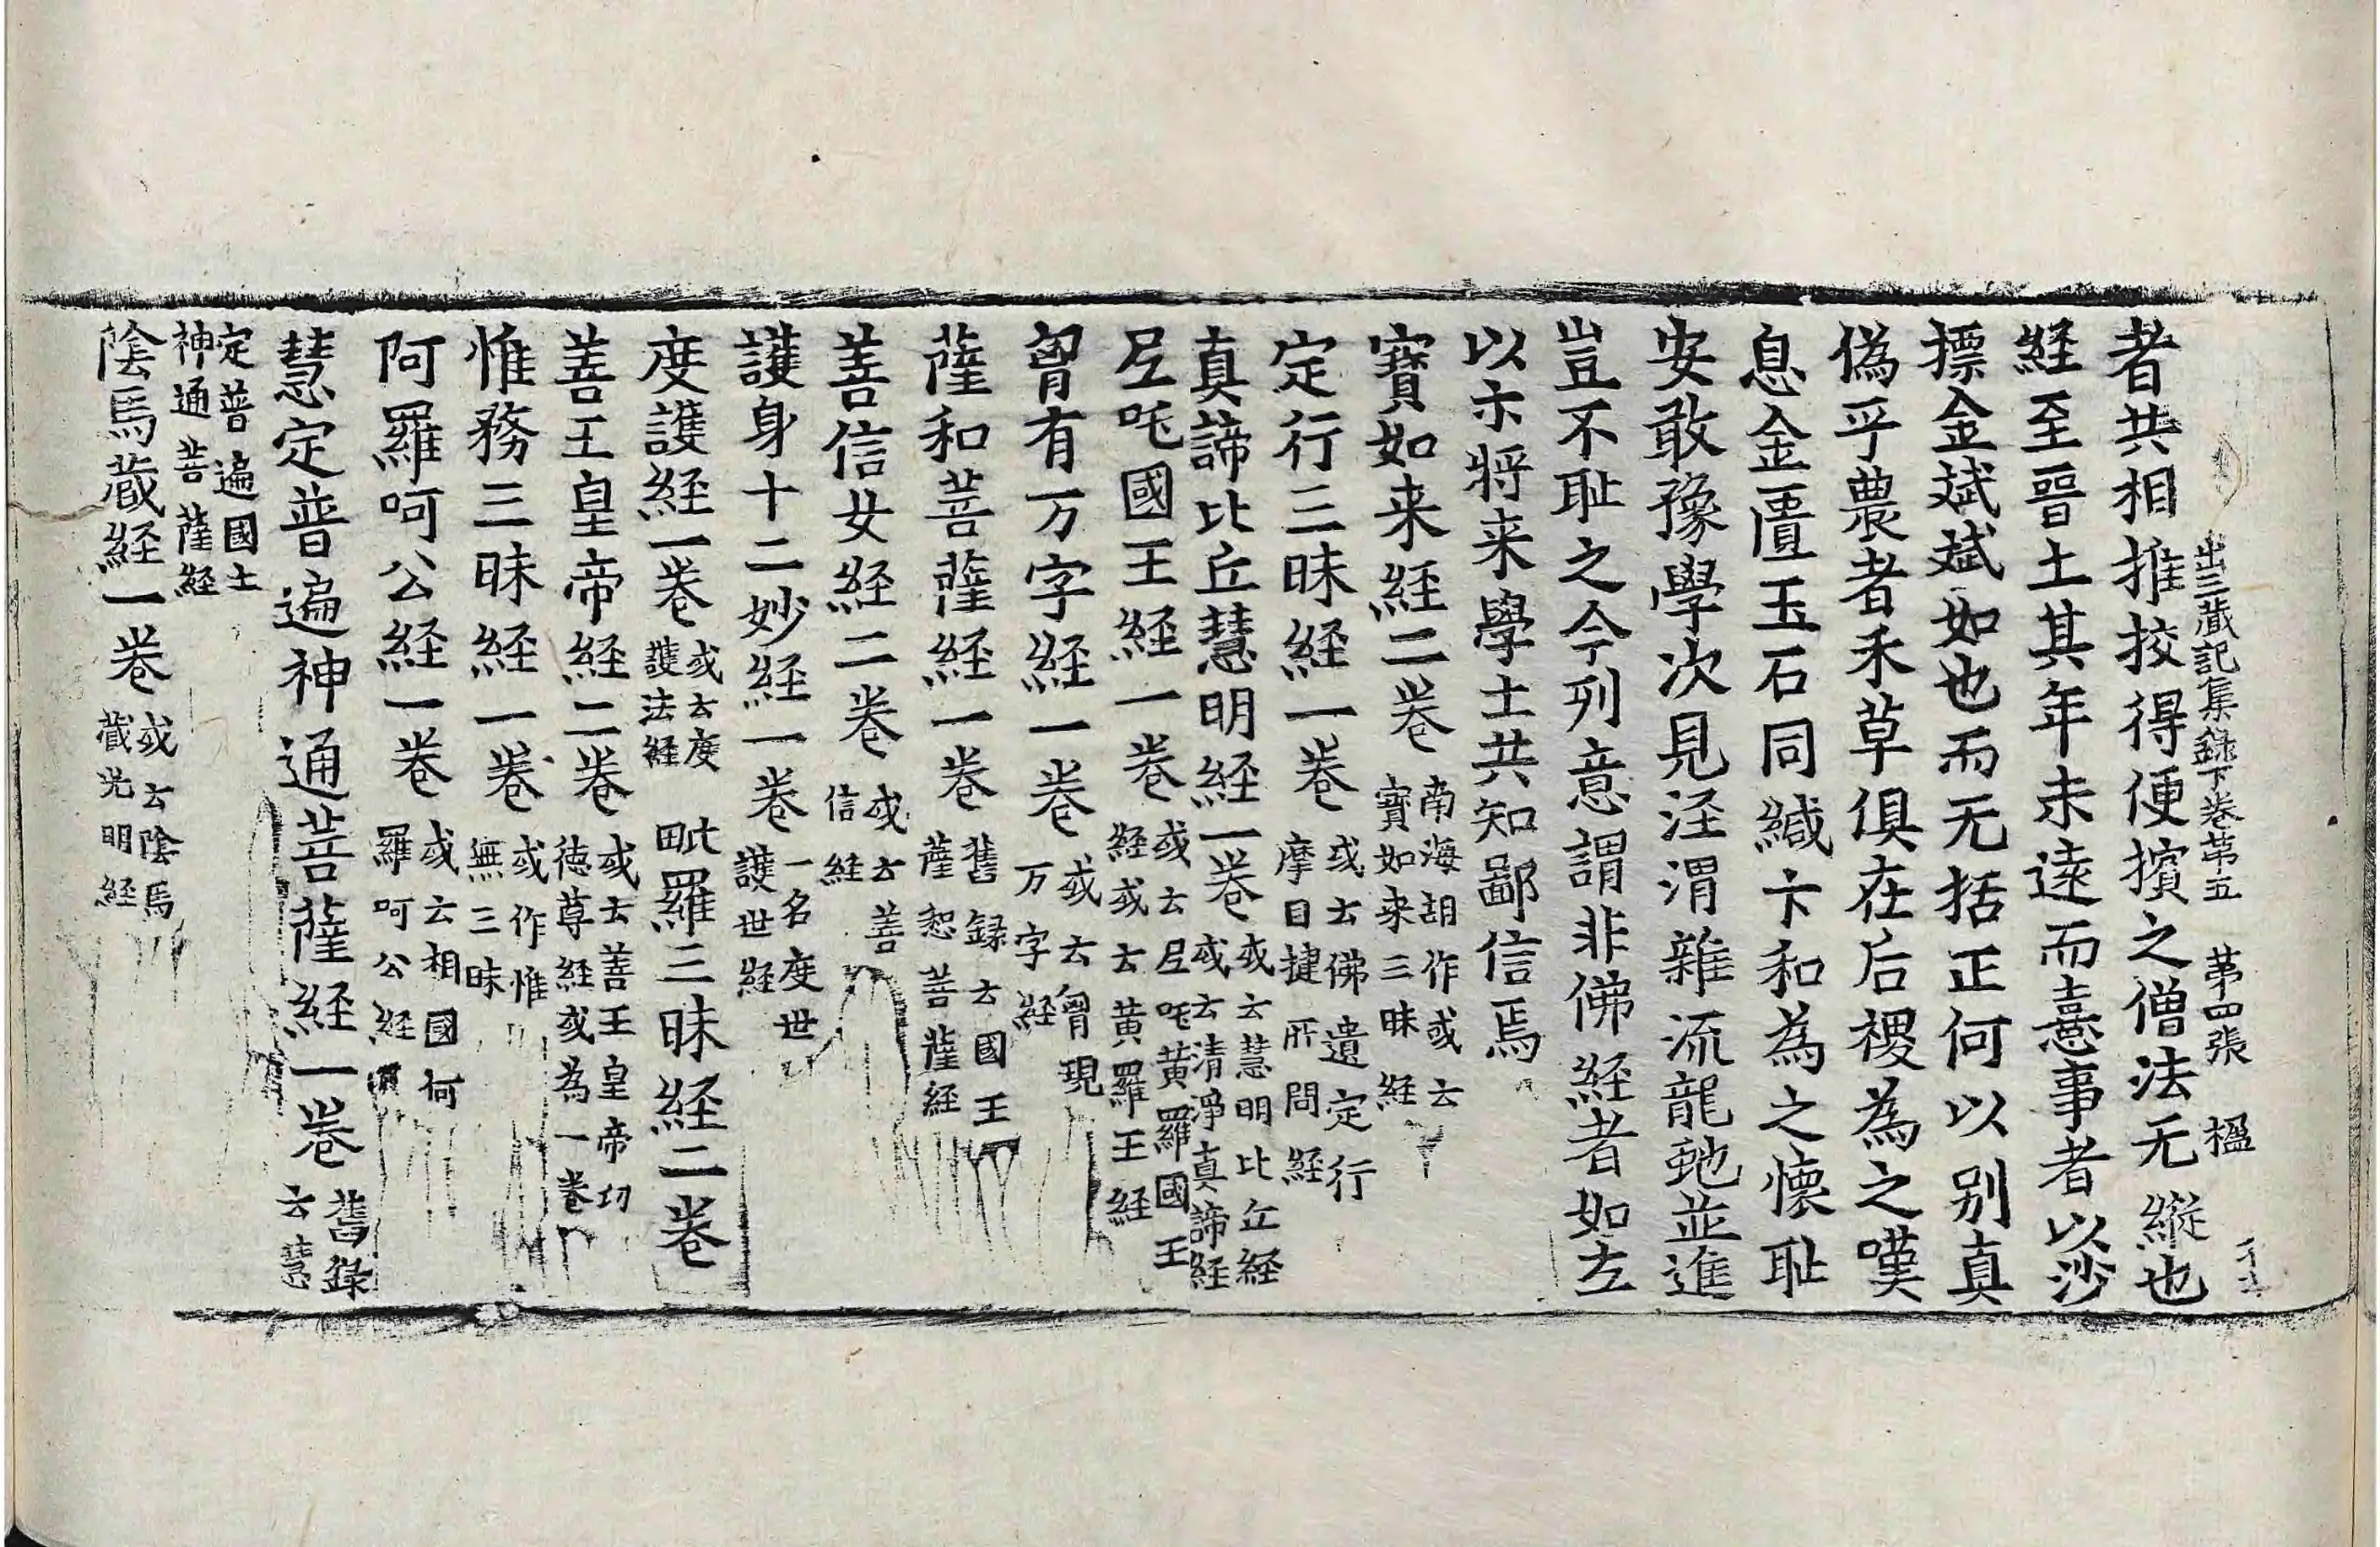 出三藏記集録下卷第五 第四張 楹
者共相推挍得便擯之僧法无縱也
経至晋土其年未遠而憙事者以沙
摽金斌斌如也而无括正何以別真
偽乎農者禾草俱在后稷為之嘆
息金匱玉石同緘卞和為之懷恥
安敢豫學次見泾渭雜流龍虵並進
豈不恥之今列意謂非佛経者如左
以示將来學士共知鄙信焉
寳如来経二卷 南海胡作或云寳如来三昧経
定行三昧経一卷 或云佛遺定行摩目揵所問経
真諦比丘慧明経一卷 或云慧明比丘経或云清淨真諦経
尼吒國王経一卷 或云尼吒黄羅國王経或云黄羅王経
胷有万字経一卷 或云胷現万字経
薩和菩薩経一卷 舊録云國王薩惒菩薩経
善信女経二卷 或云善信経
護身十二妙経一卷 一名度世護世経
度護経一卷 或云度護法経 毗羅三昧経二卷
善王皇帝経二卷 或云善王皇帝功徳尊経或為一卷
惟務三昧経一卷 或作惟無三昧
阿羅呵公経一卷 或云相國何羅呵公経
慧定普遍神通菩薩経一卷 舊録云慧
定普遍國土神通菩薩経
陰馬藏経一卷 或云陰馬藏光明経